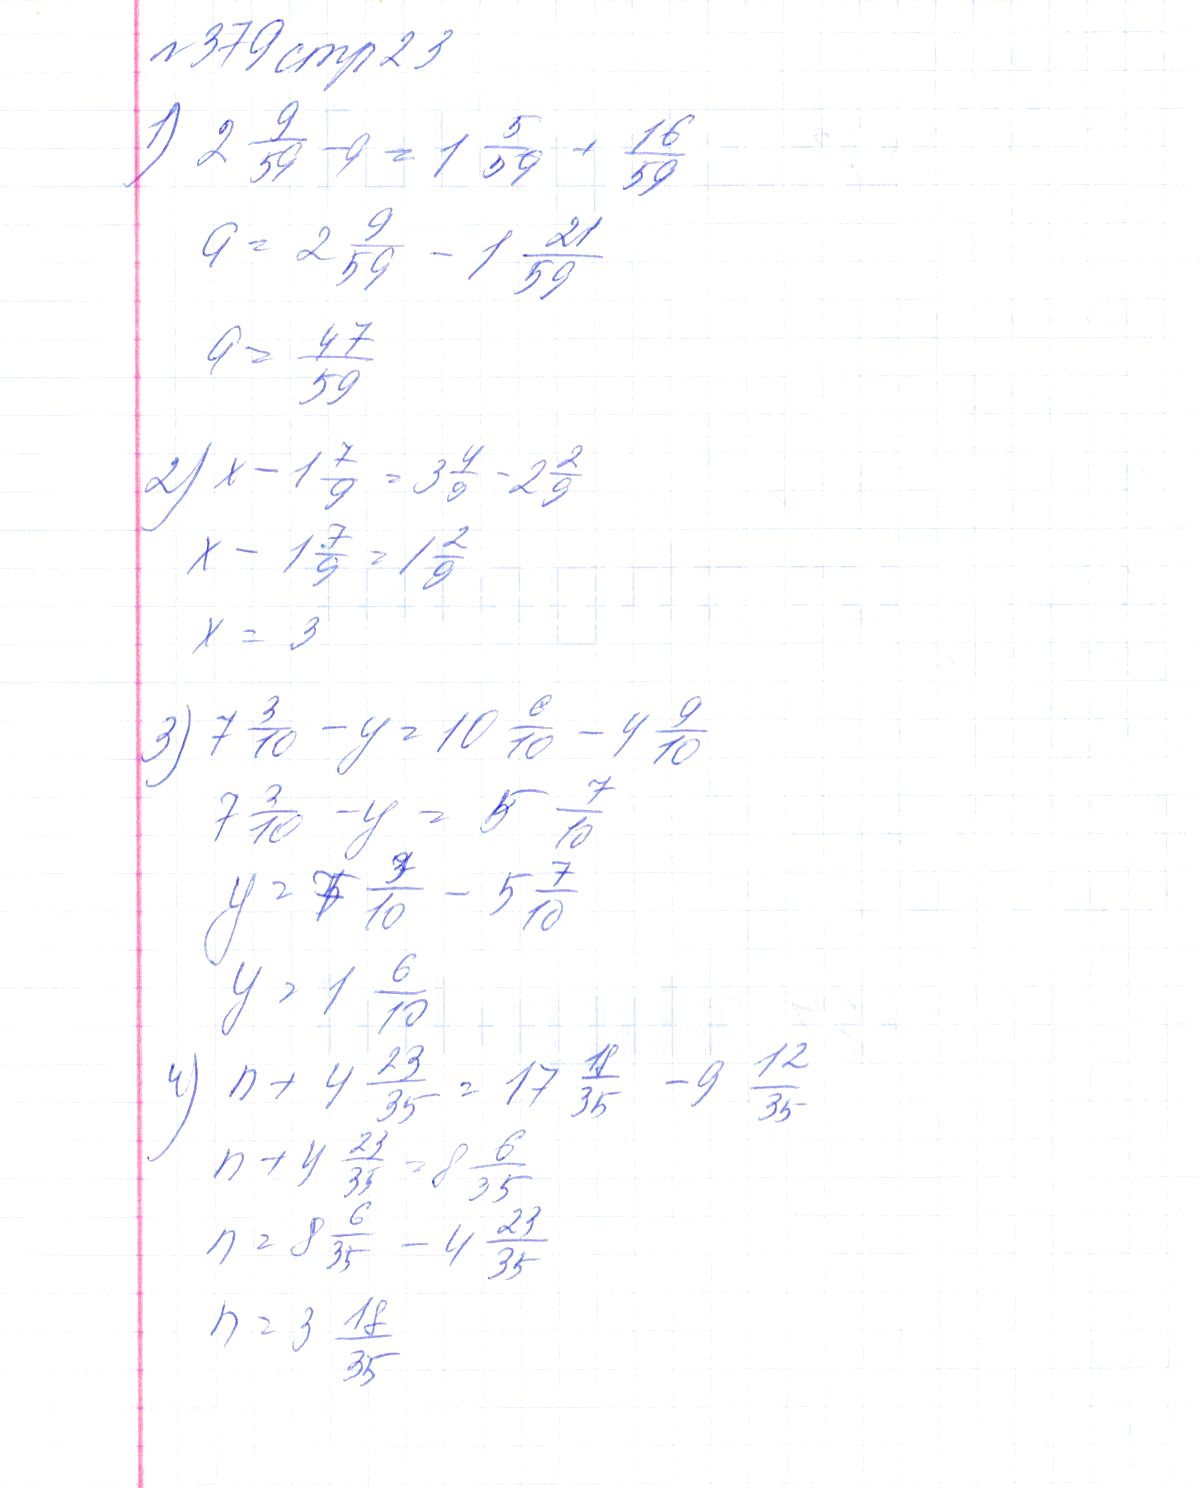 №379 стр 23
1) 2 9/59 - a = 1 5/59 + 16/59
a = 2 9/59 - 1 21/59
a = 47/59
2) x - 1 7/9 = 3 4/9 - 2 2/9
x - 1 7/9 = 1 2/9
x = 3
3) 7 3/10 - y = 10 6/10 - 4 9/10
7 3/10 - y = 5 7/10
y = 7 3/10 - 5 7/10
y = 1 6/10
4) n + 4 23/35 = 17 18/35 - 9 12/35
n + 4 23/35 = 8 6/35
n = 8 6/35 - 4 23/35
n = 3 18/35